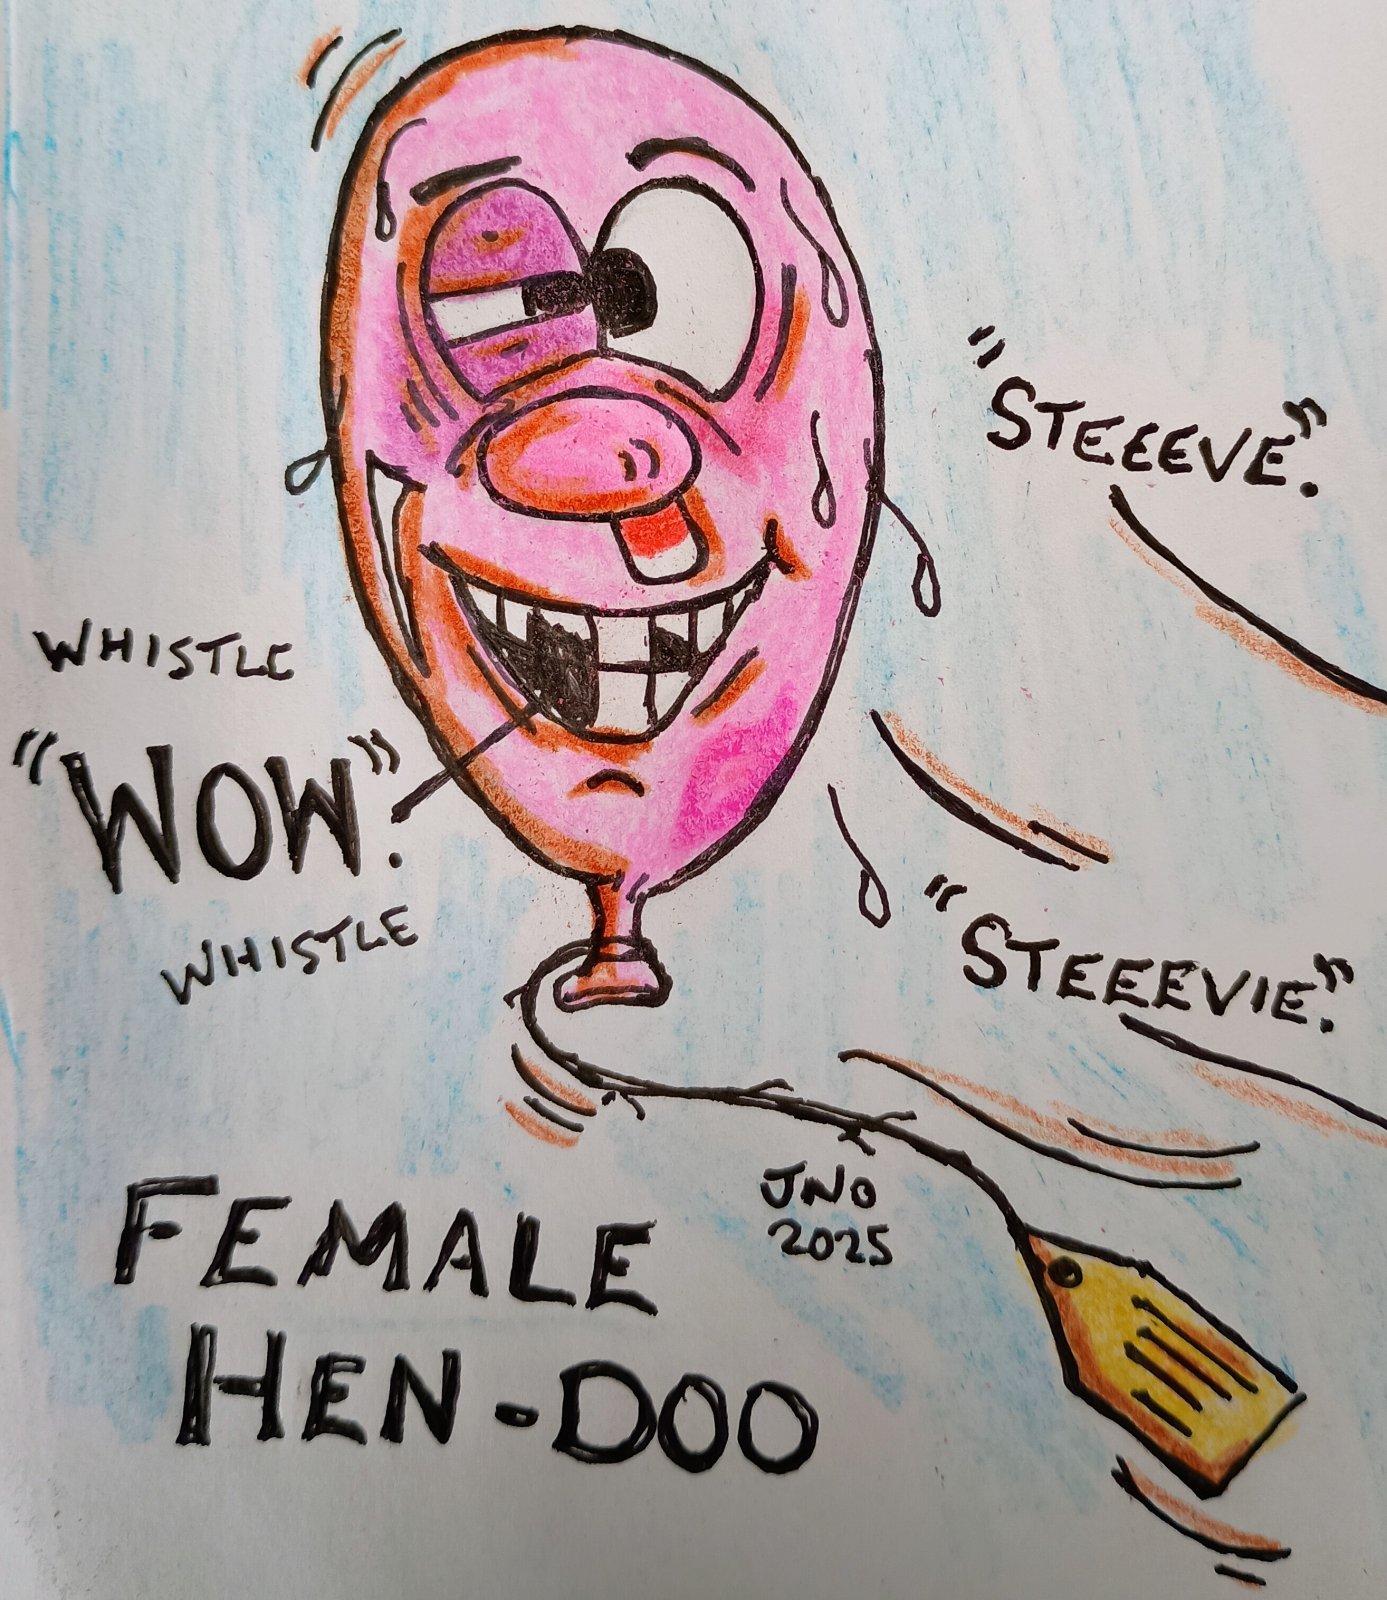 "STEEEVE".
WHISTLE
"WOW".
WHISTLE
"STEEEVIE".
JNO
2025
FEMALE
HEN-DOO